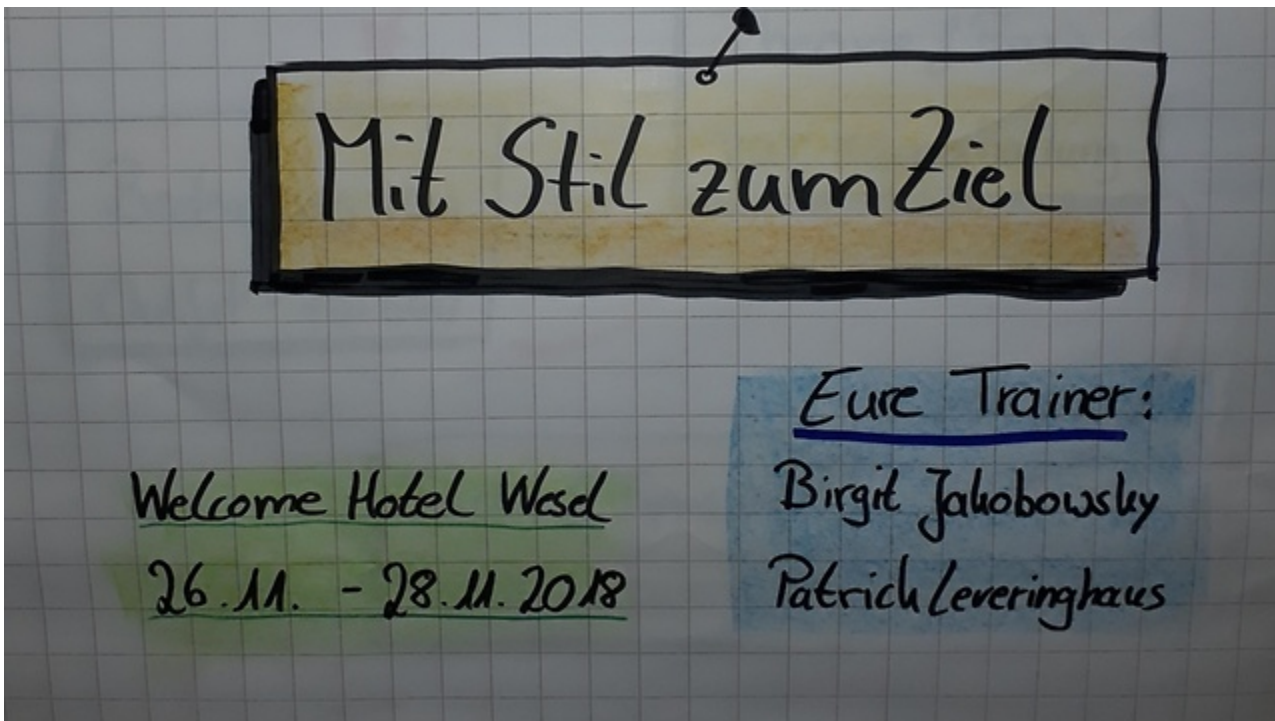 Mit Stil zum Ziel
Welcome Hotel Wesel
26.11. - 28.11.2018
Eure Trainer:
Birgit Jakobowsky
Patrick Leveringhaus